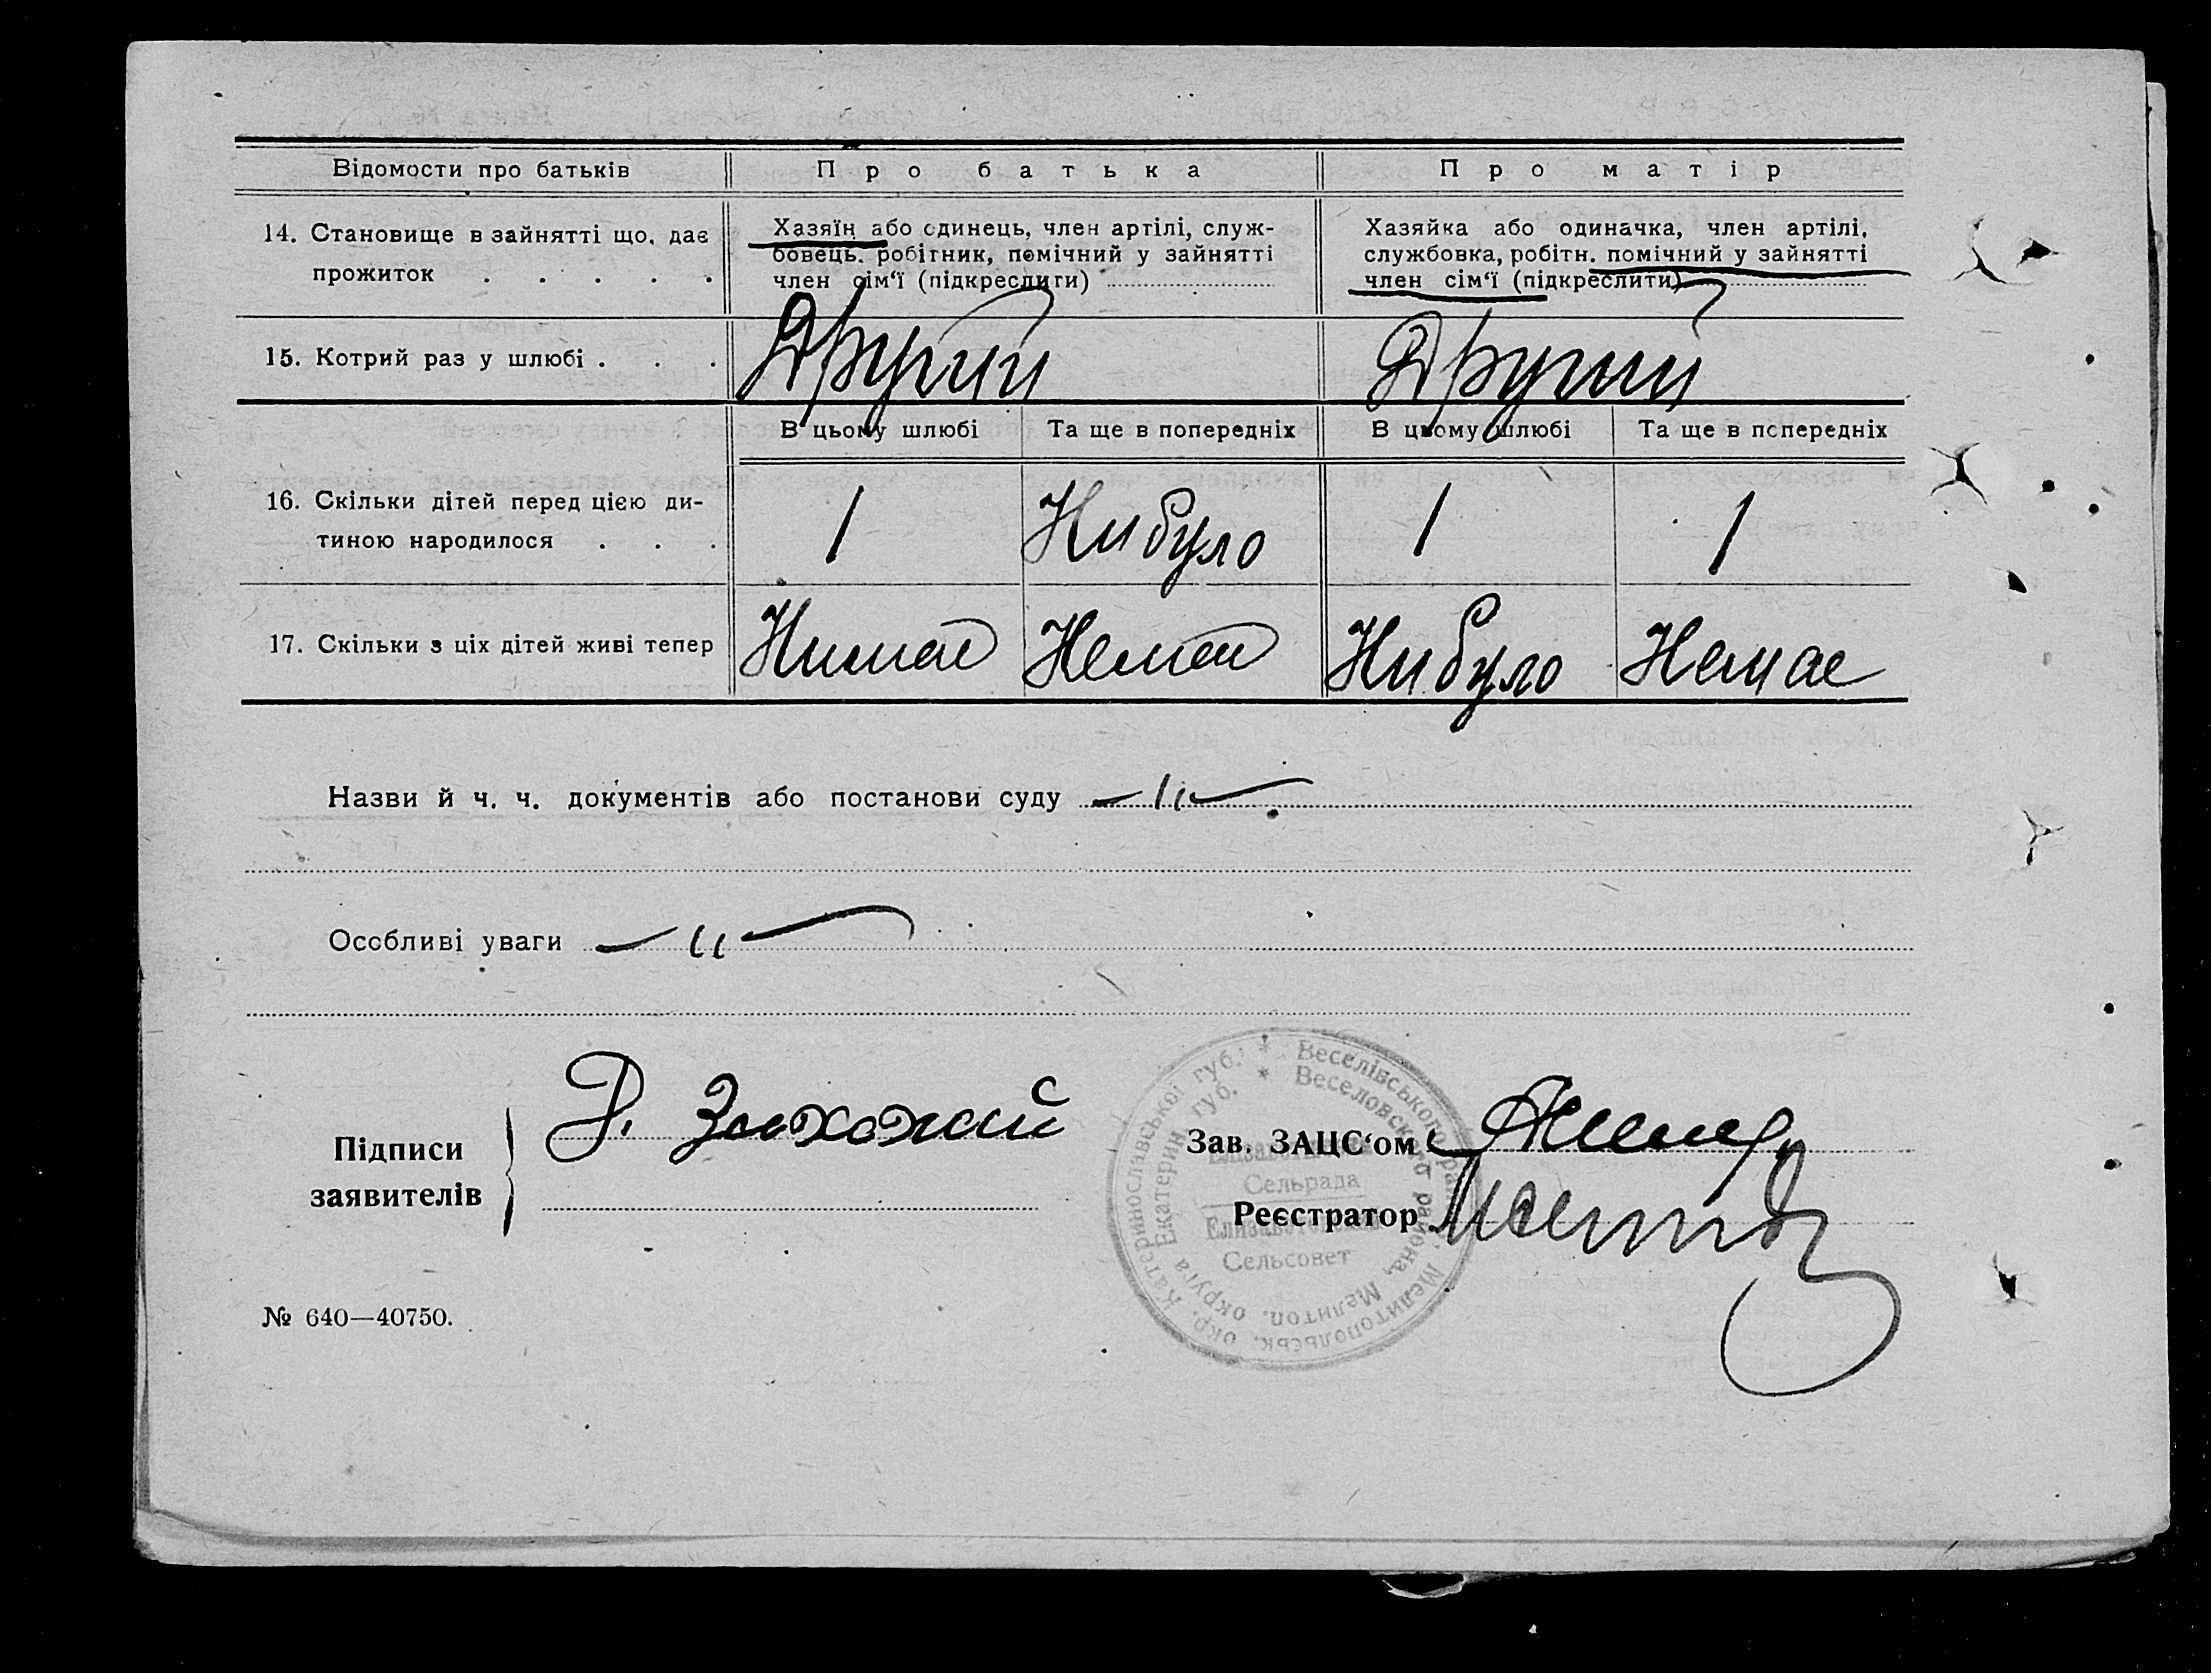 Відомости про батьків Про батька Про матір
14. Становище в зайнятті що, дає прожиток . . . . .
Хазяїн або одинець, член артілі, служ-
бовець, робітник, помічний у зайнятті
член сім‘ї (підкреслити)
Хазяйка або одиначка, член артілі,
службовка, робітн. помічний у зайнятті
член сім‘ї (підкреслити)
15. Котрий раз у шлюбі . . . Другий Другий
В цьому шлюбі Та ще в попередніх В цьому шлюбі Та ще в попередніх
16. Скільки дітей перед цією ди-
тиною народилося . . . 1 Нибуло 1 1
17. Скільки з ціх дітей живі тепер Нимае Немае Нибуло Немае
Назви й ч. ч. документів або постанови суду —〃—
Особливі уваги —〃—
Підписи
заявителів
Зав. ЗАЦС‘ом
Реєстратор
Веселівського рай. Мелитопольськ. окр. Катеринославської губ. *
Веселовского района, Мелитоп. округа Екатерин губ. *
Сельрада
Сельсовет
№ 640—40750.